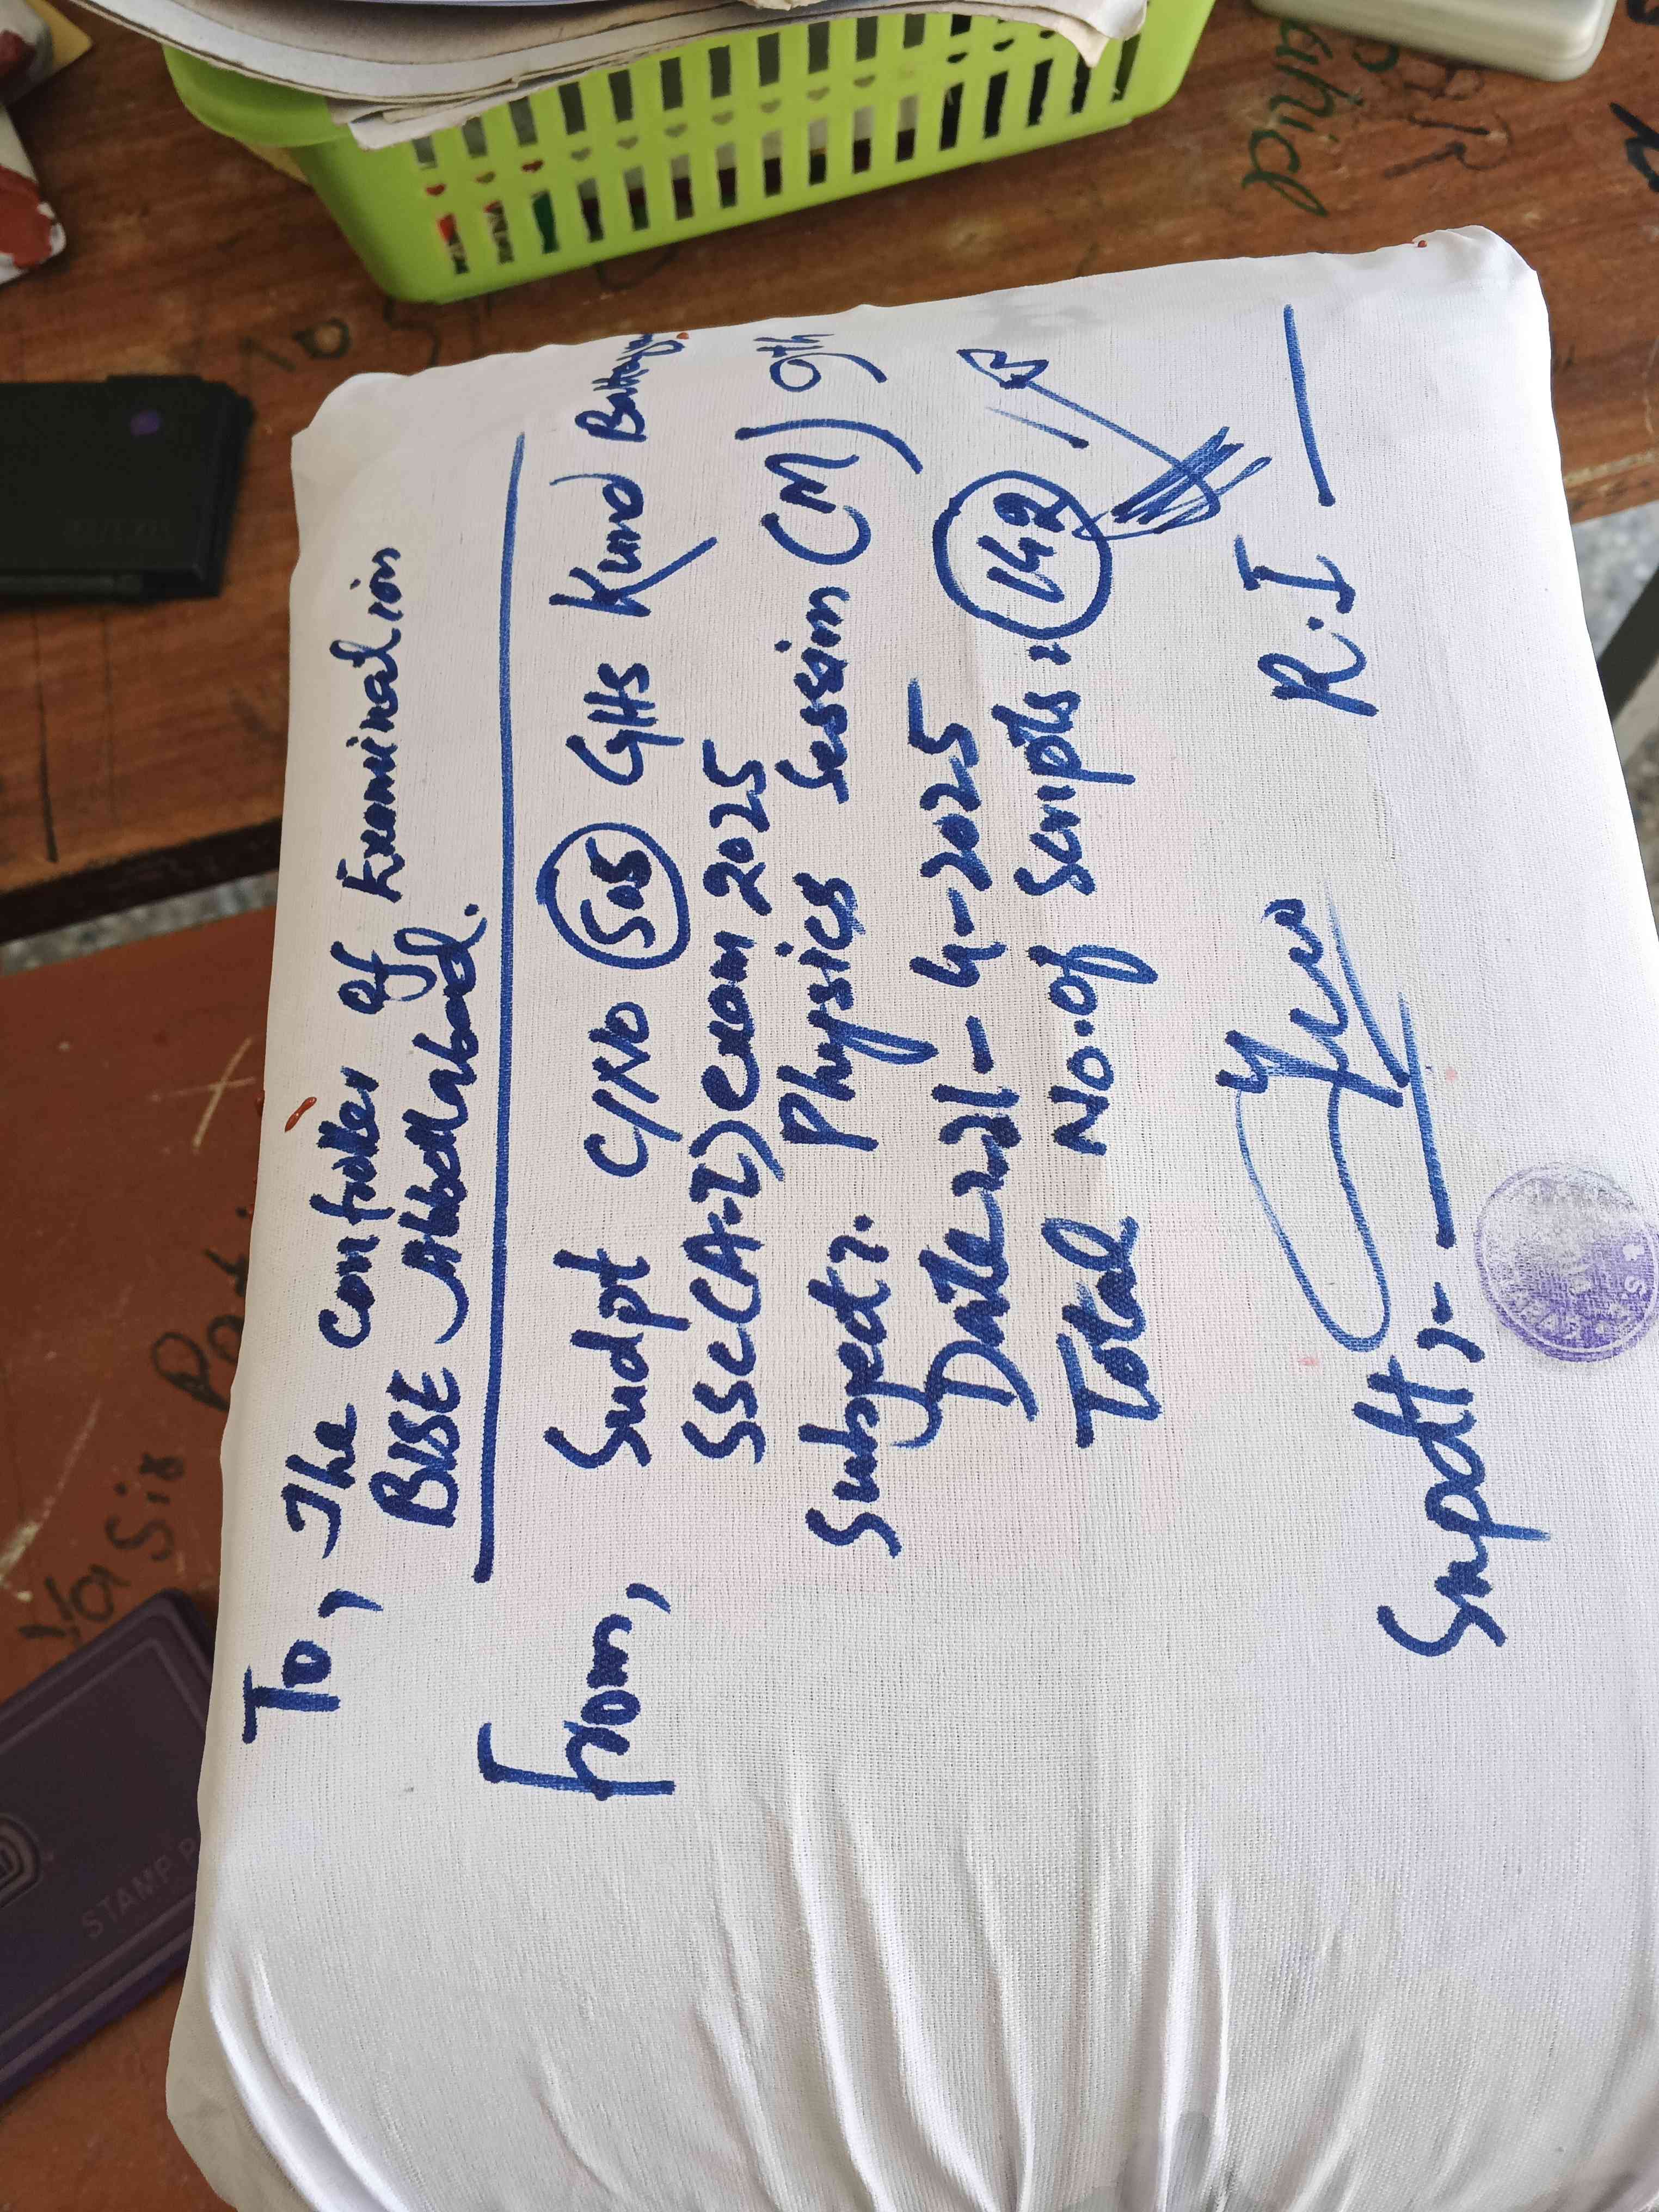 To, The Controller of Examination
BISE Abbottabad.
From,
Sudpt C/No 505 GHS Kund
SSC(A-I) exam 2025
Subject:. Physics Session (M) 9th
Date:-21-4-2025
Total No. of Scripts: 142
Supdt:-
R.I
STAMP
Yasir